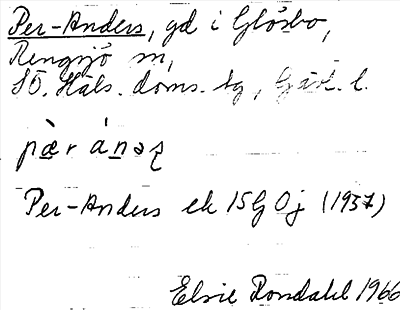 Per-Anders, gd i Glösbo,
Rengsjö sn,
SÖ. Häls. doms. tg, Gävl. l.
pær ánəʂ
Per-Anders ek 15G Oj (1937)
Elsie Rondahl 1966